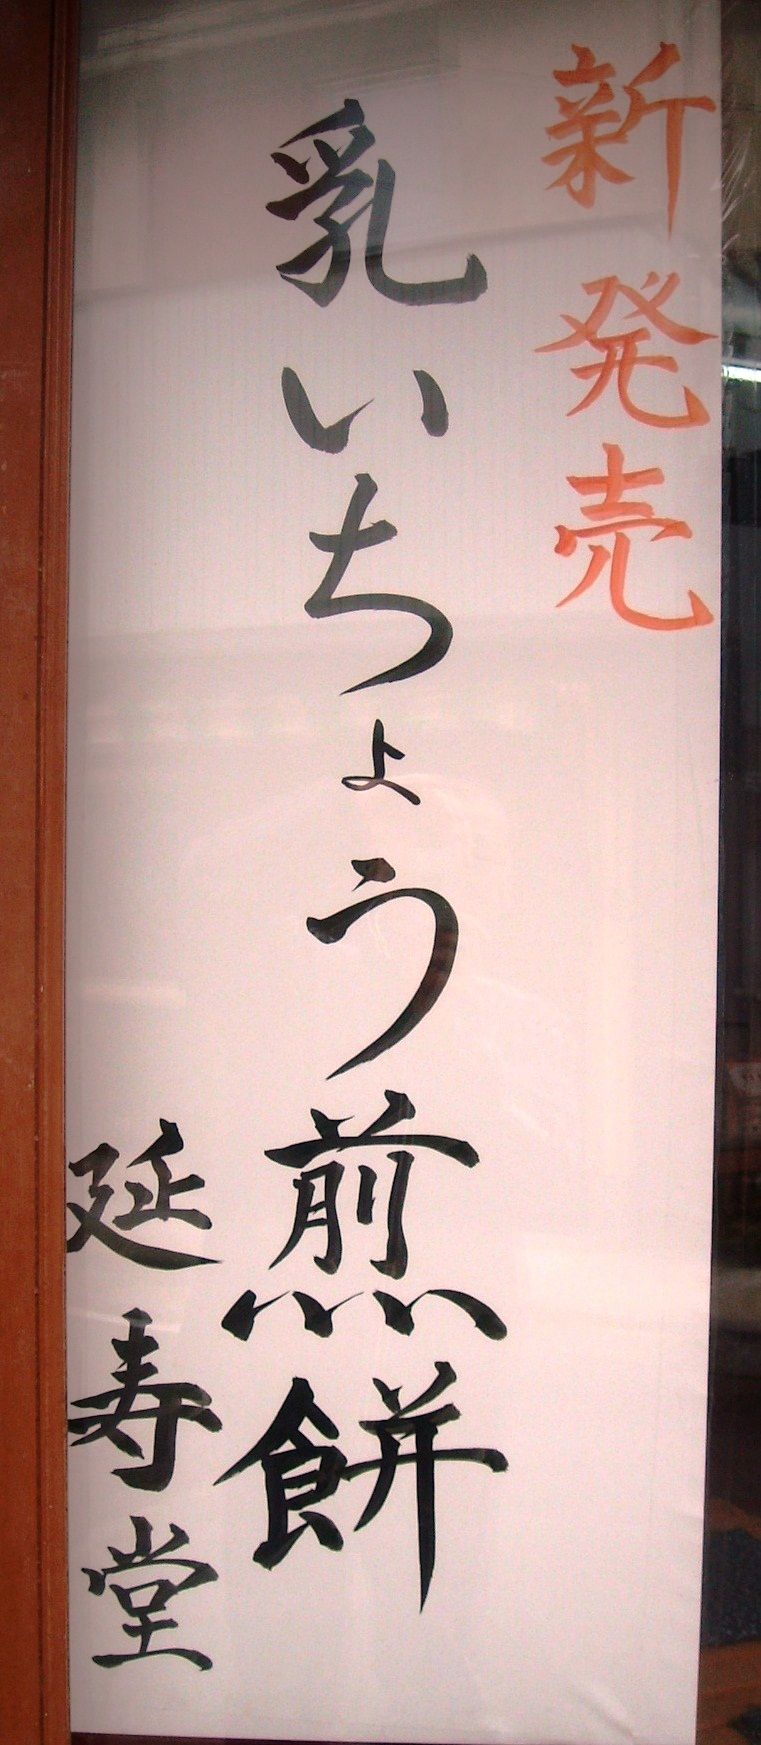 新発売
乳いちょう煎餅
延寿堂